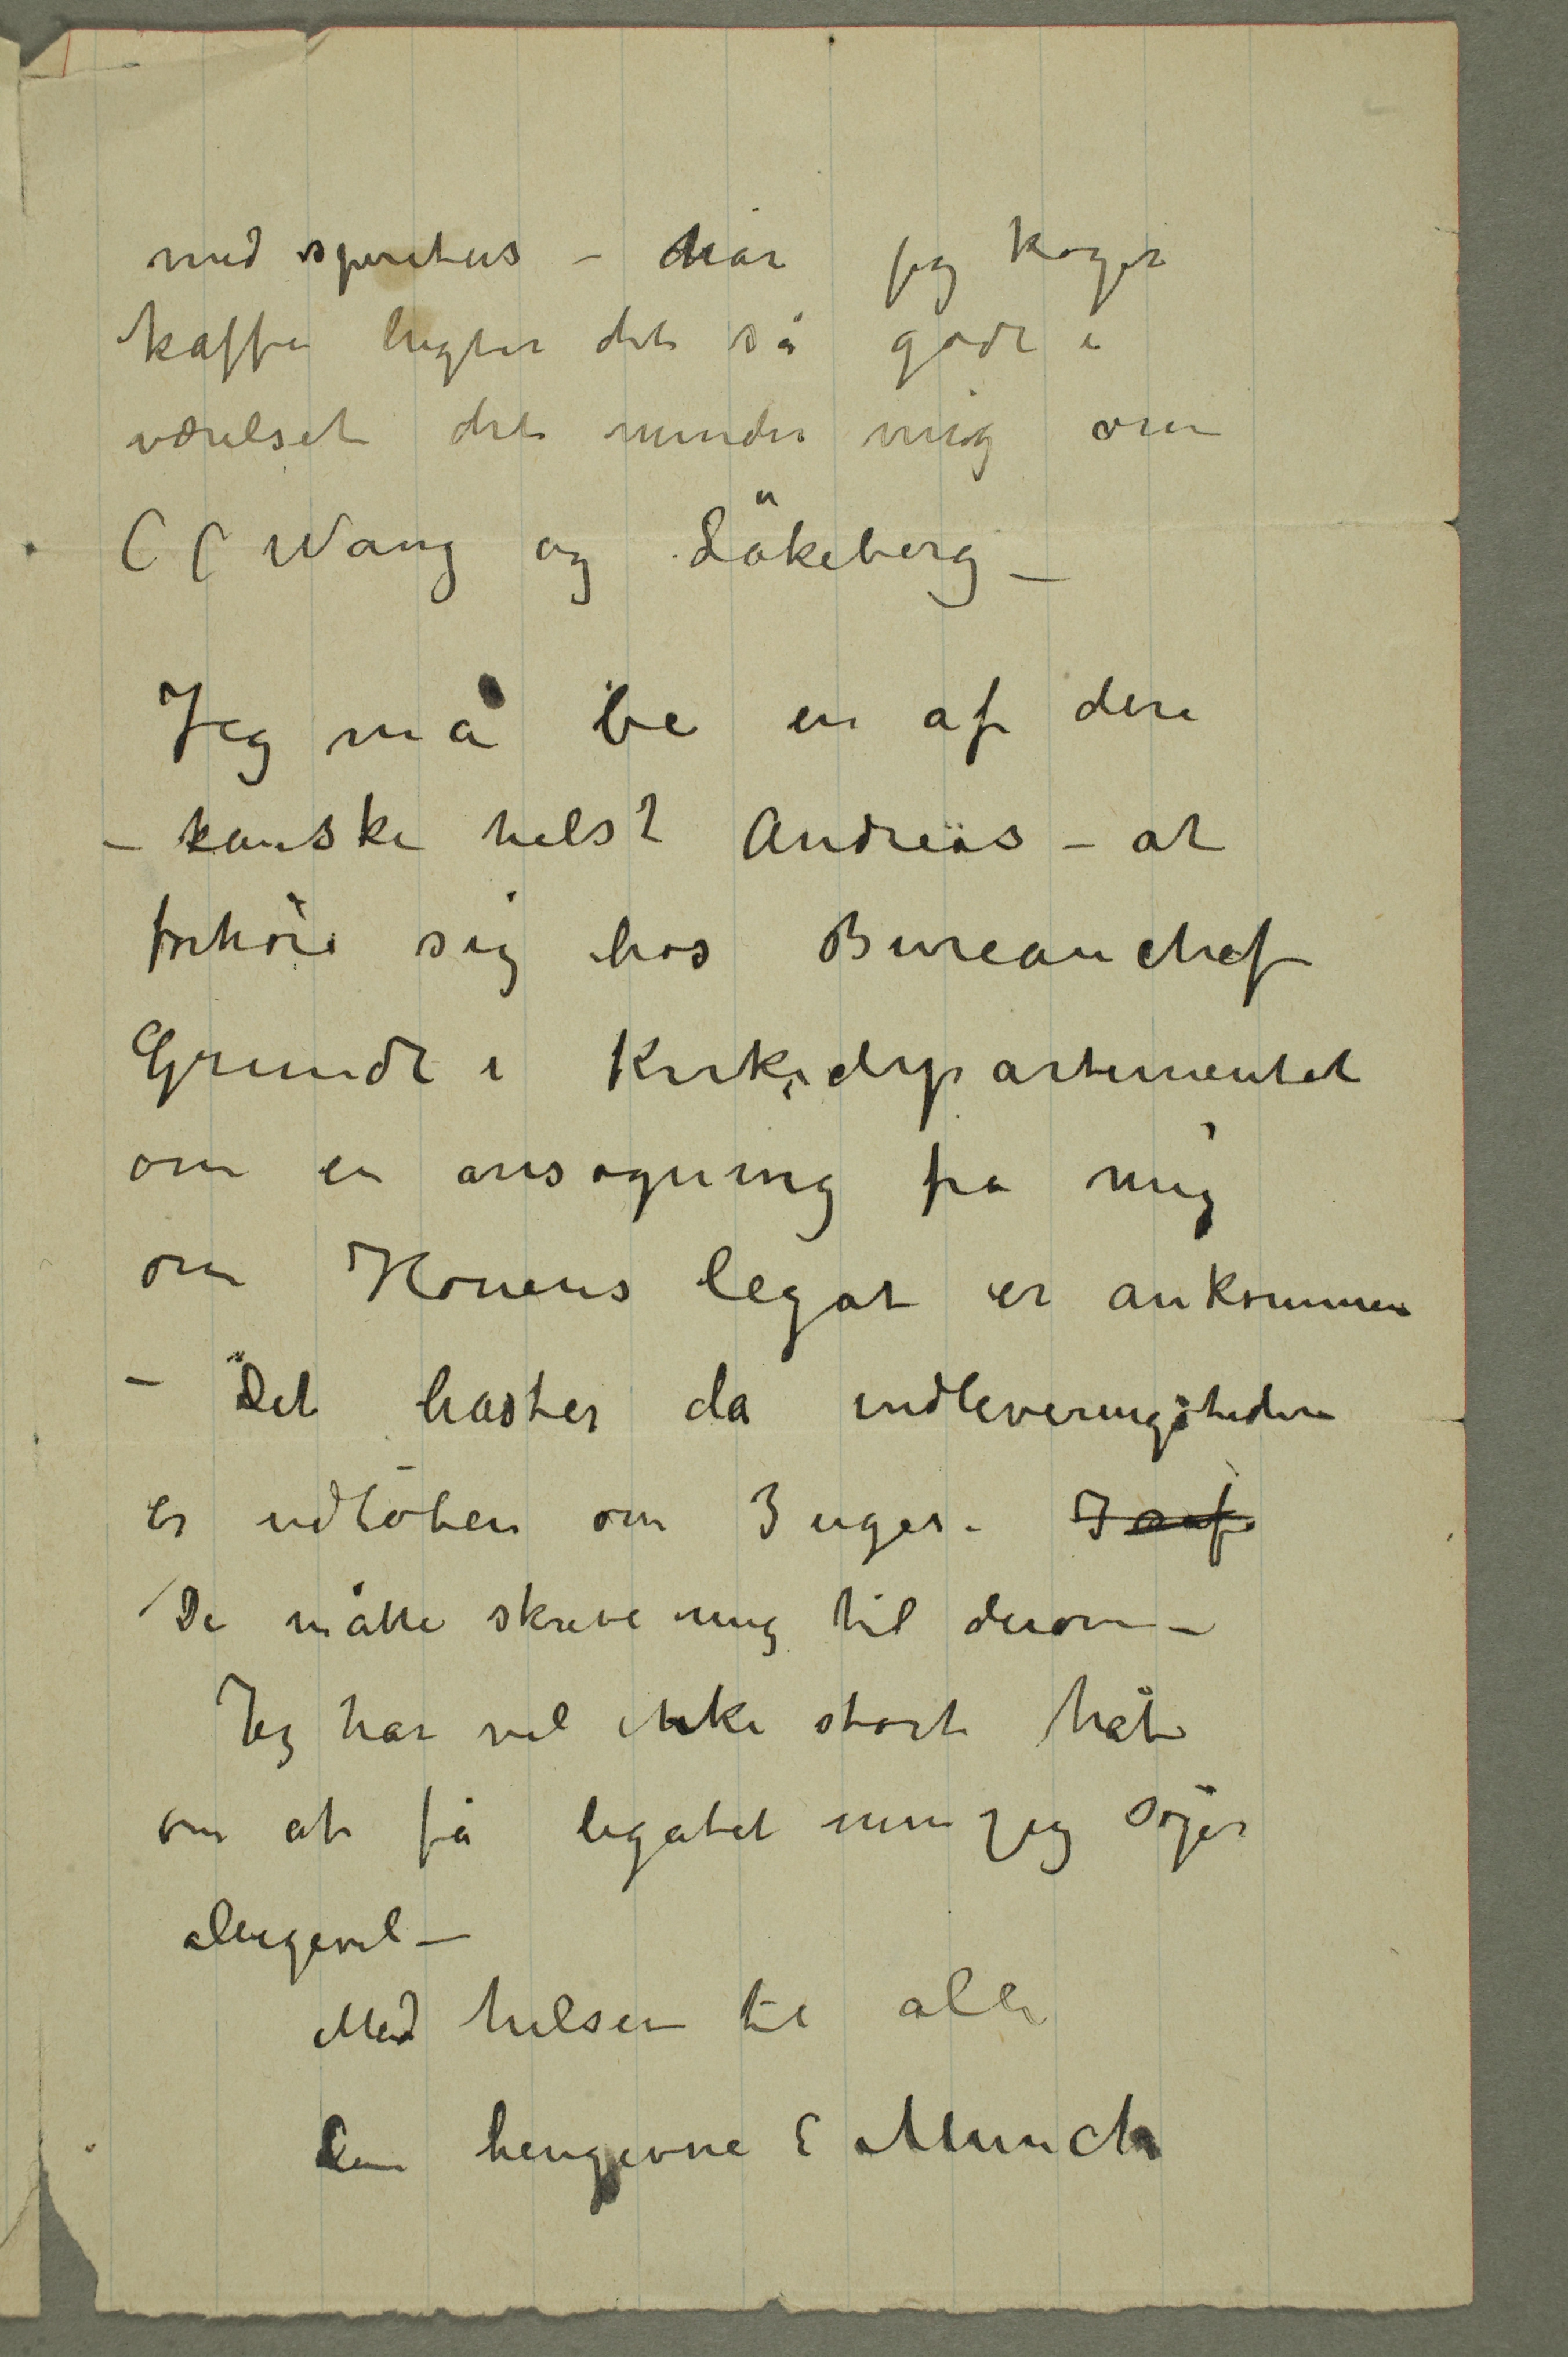 med spiritus – når jeg koger
kaffe lugter det så godt i
værelset det minder mig om
C C Wang og Läkeberg –
Jeg må be en af dere
– kanske helst Andreas – at
forhöre sig hos Bureauchef
Grundt i Kirkedepartementet
om en ansøgning fra mig
om Hounens legat er ankommen
– Det haster da indleveringstiden
er udløben om 3 uger.
De måtte skrive mig til derom –
Jeg har vel ikke stort håb
om at få legatet men jeg søger
alligevel –
Med hilsen til alle
Den hengivne E Munch